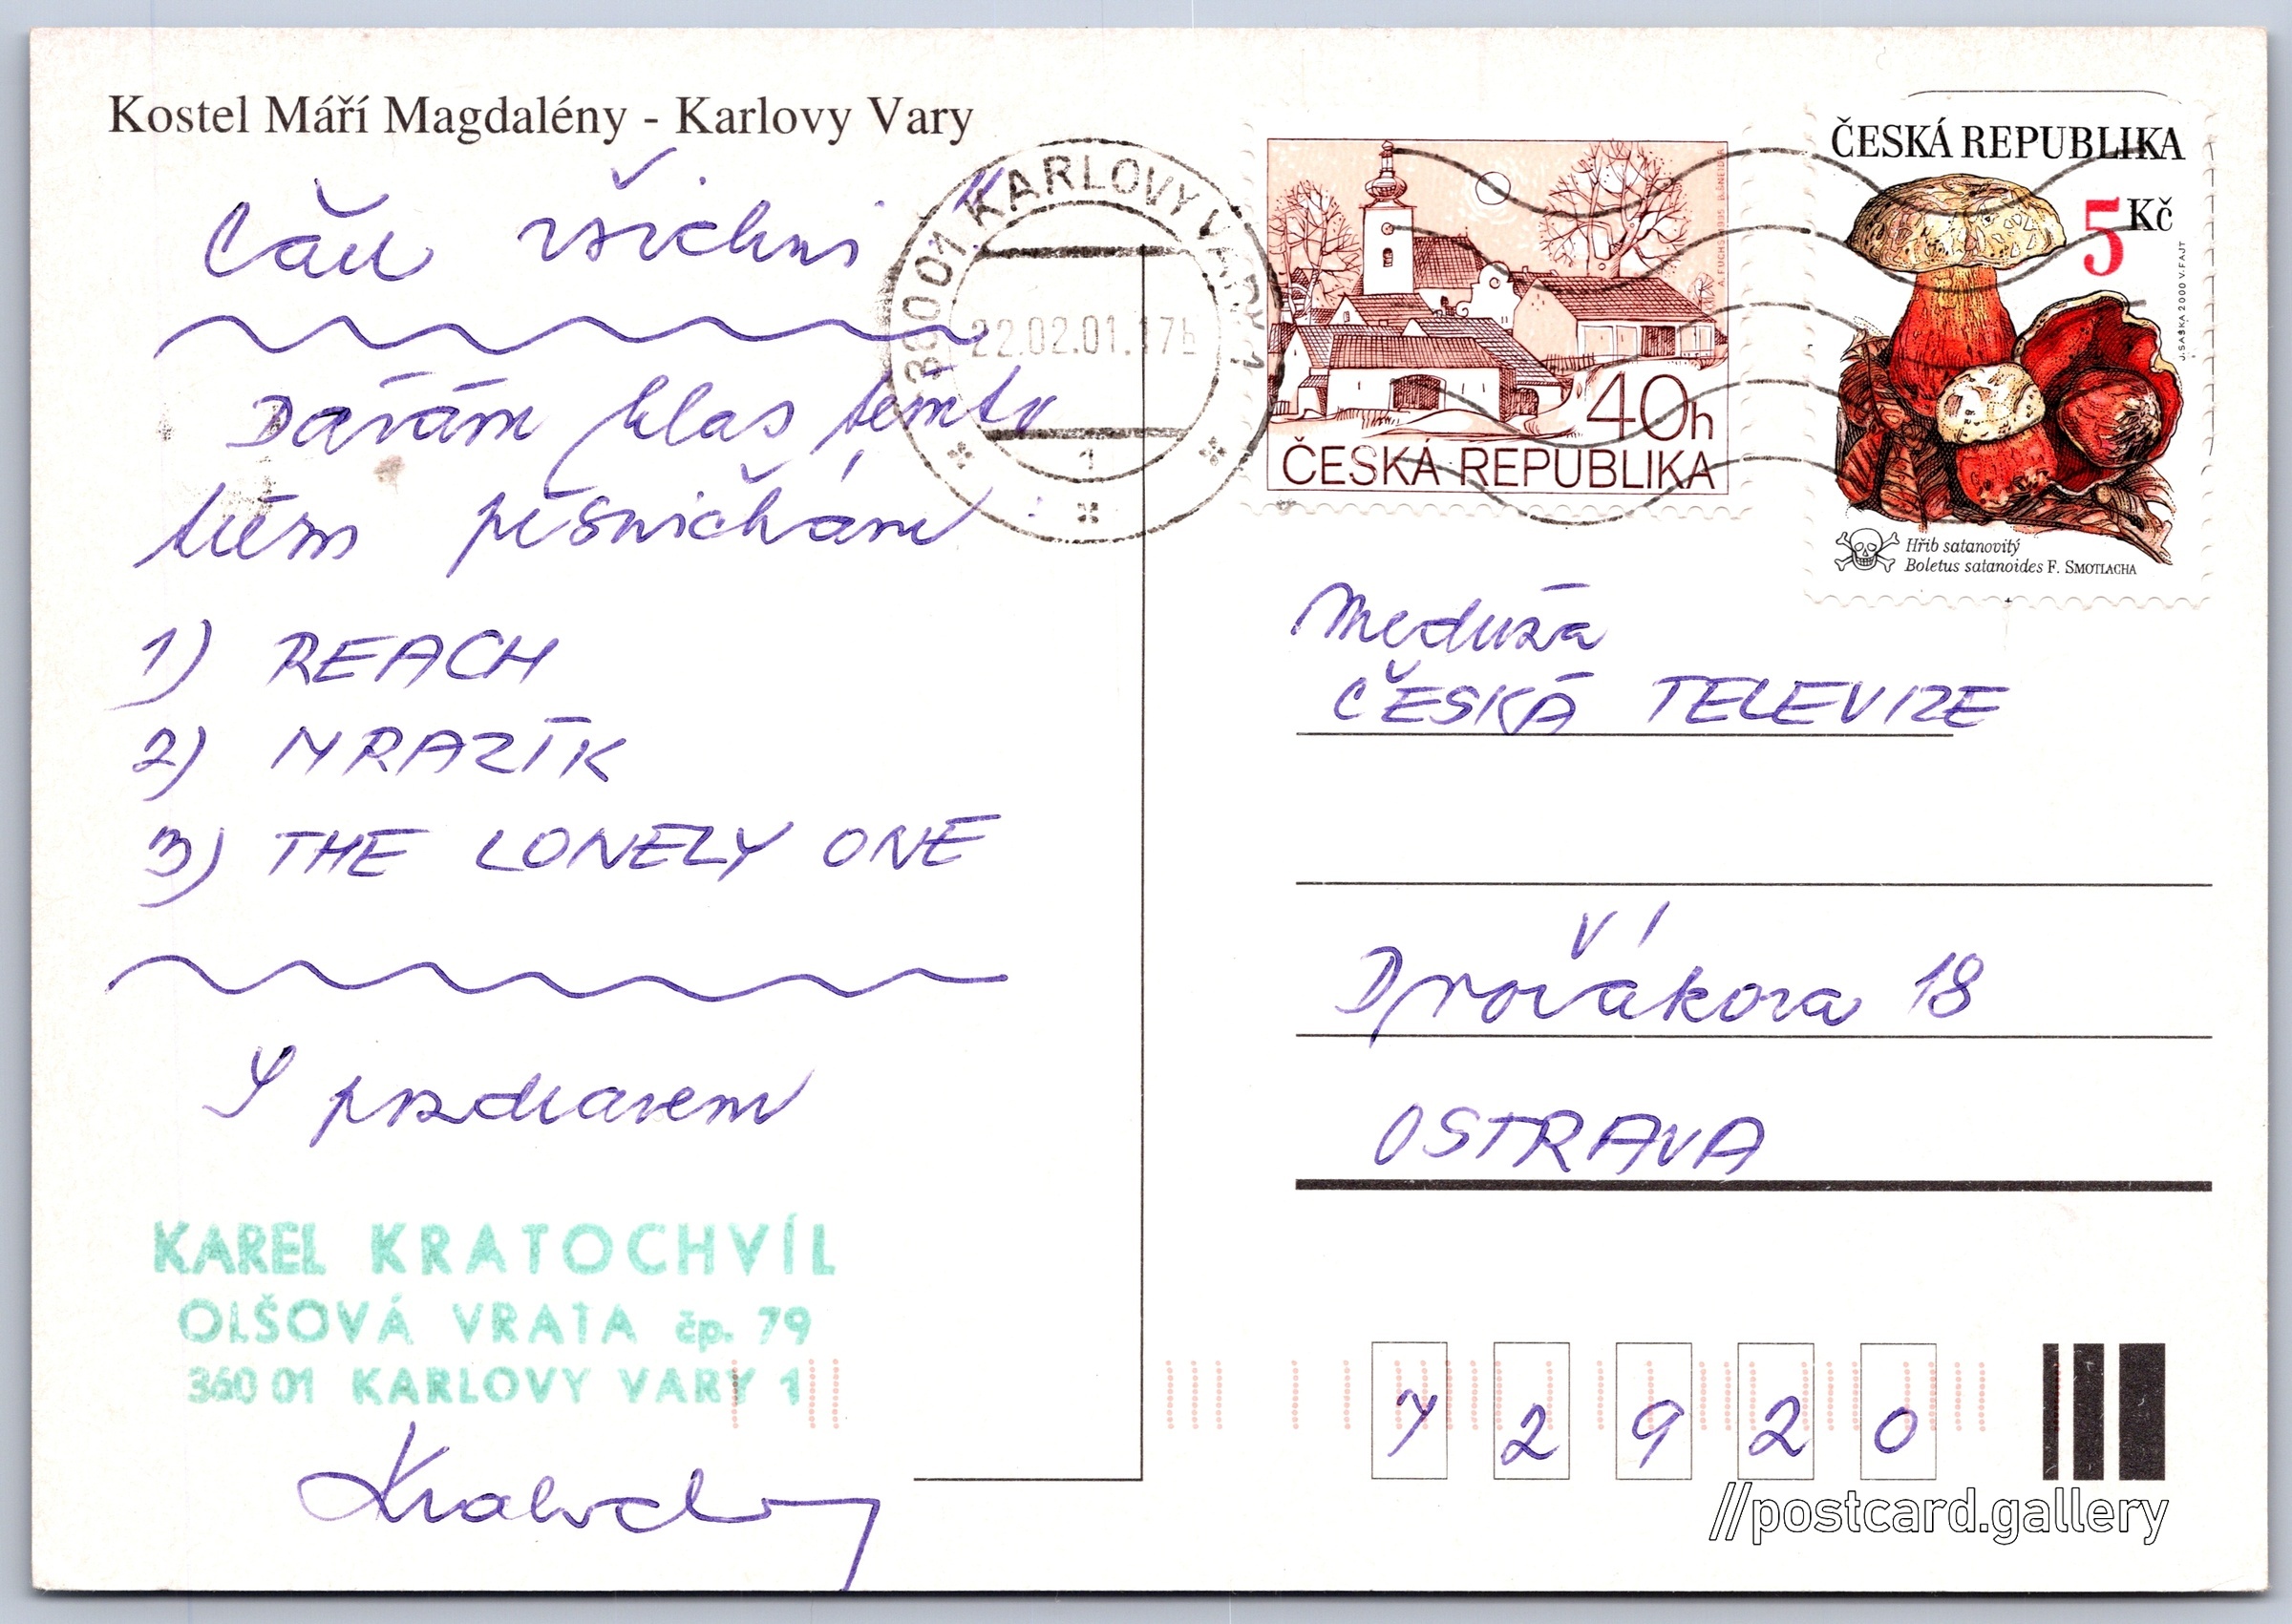 Kostel Máří Magdalény - Karlovy Vary
Čău všichni
Dávám hlas těmto
třem písničkám
1) REACH
2) MRAZÍK
3) THE LONELY ONE
S pozdravem
KAREL KRATOCHVÍL
OLŠOVÁ VRATA čp. 79
360 01 KARLOVY VARY 1
360 01 KARLOVY VARY 1
22.02.01.17h
1
40h
ČESKÁ REPUBLIKA
ČESKÁ REPUBLIKA
5 Kč
J. SAŠKA 2000 V. FAJT
Hřib satanovitý
Boletus satanoides F. SMOTLACHA
Medúza
ČESKÁ TELEVIZE
Dvořákova 18
OSTRAVA
72920
//postcard.gallery